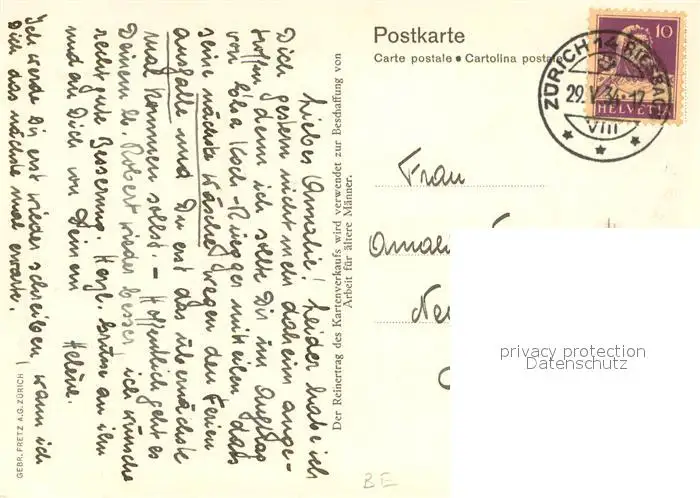 Postkarte
Carte postale • Cartolina postale
ZÜRICH 14 RIESBACH
29.V.34.-12
VIII
10
HELVETIA
Frau
Amali
privacy protection
Datenschutz
Der Reinertrag des Kartenverkaufs wird verwendet zur Beschaffung von
Arbeit für ältere Männer.
Liebes Amalie! Leider habe ich
Dich gestern nicht mehr daheim ange-
troffen, denn ich sollte Dir im Auftrag
von Elsa Koch-Rüegger mitteilen, dass
seine nächste Wäsche wegen den Ferien
ausfalle und Du erst das übernächste
mal kommen sollst. – Hoffentlich geht es
Deinem lb. Robert wieder besser, ich wünsche
recht gute Besserung. Herzl. Grüsse an ihn
und an Dich von Deinem
Helene.
Ich werde Dir erst wieder schreiben, wann ich
Dich das nächste mal erwarte.
GEBR. FRETZ A.G. ZÜRICH
BE